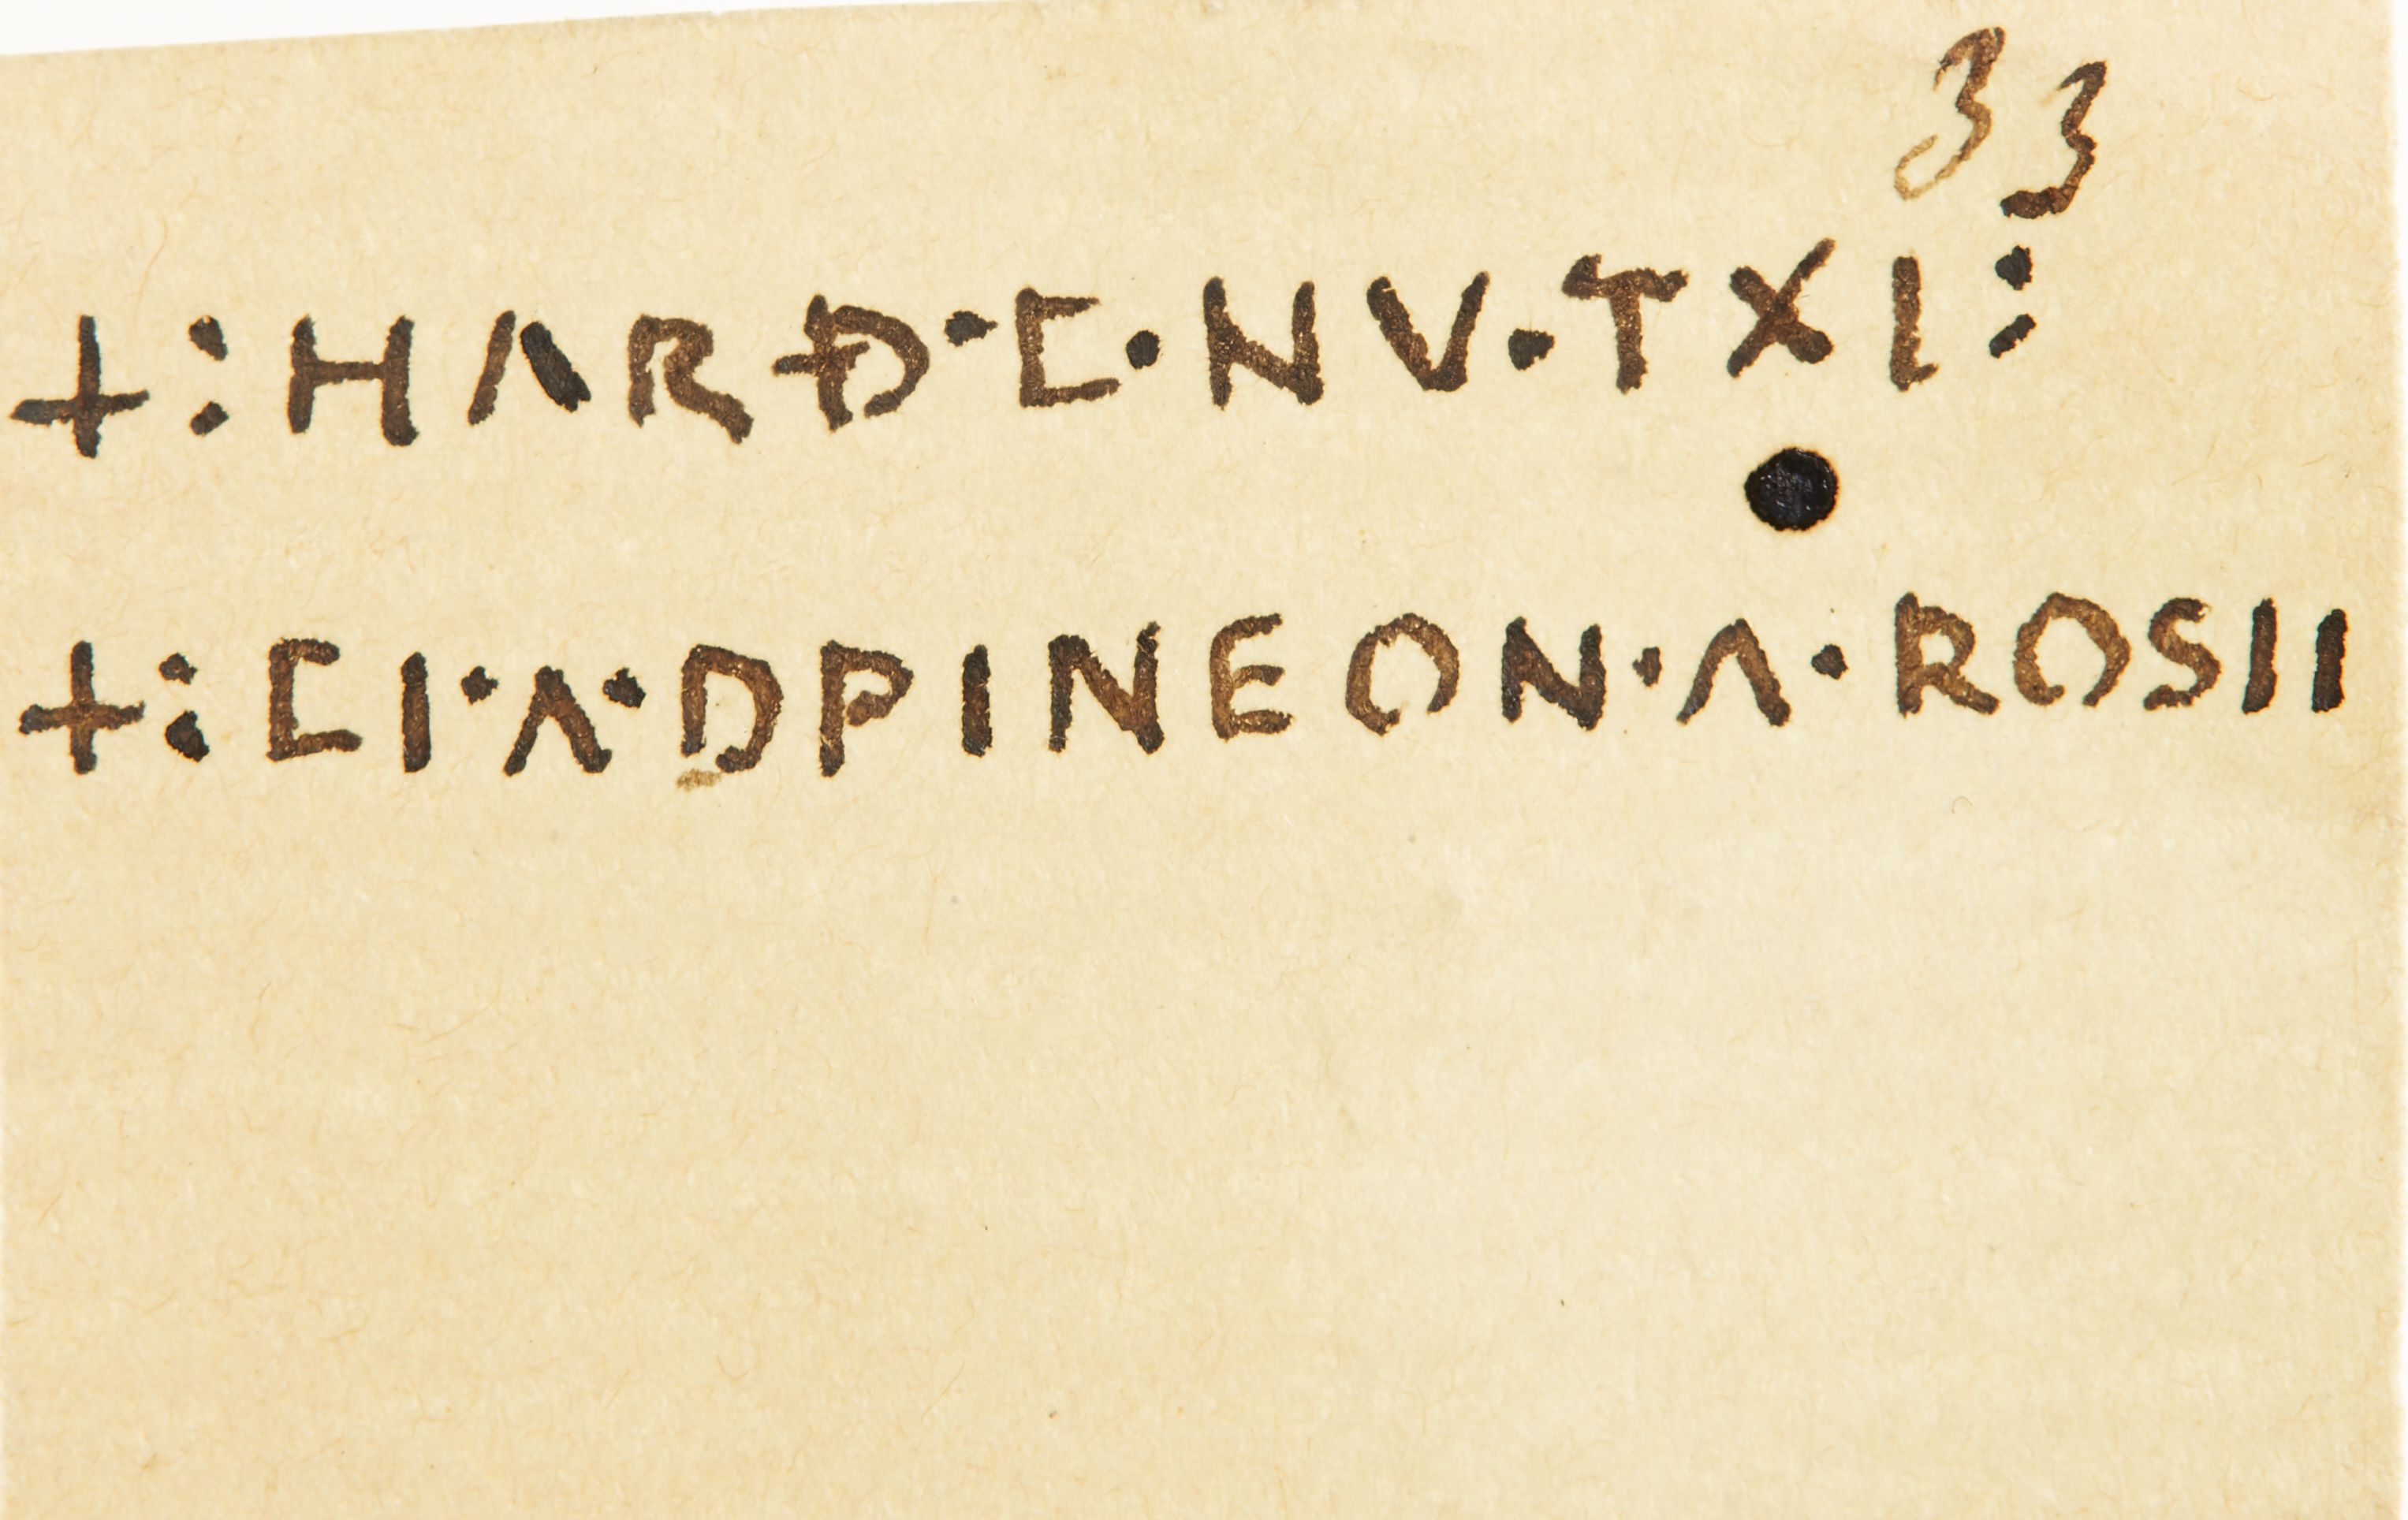 33
+:HΛRÐ·C·NV·TXI:
+:CI·Λ·DPINEON·Λ·ROSII